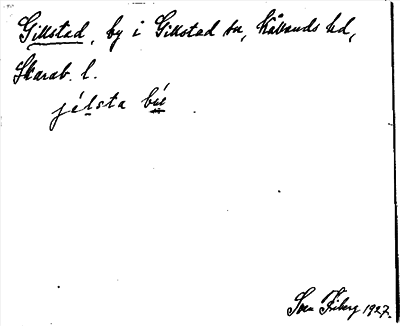 Gillstad, by i Gillstad sn, Kållands hd,
Skarab. l.
jélsta bý
Sven Friberg 1927.